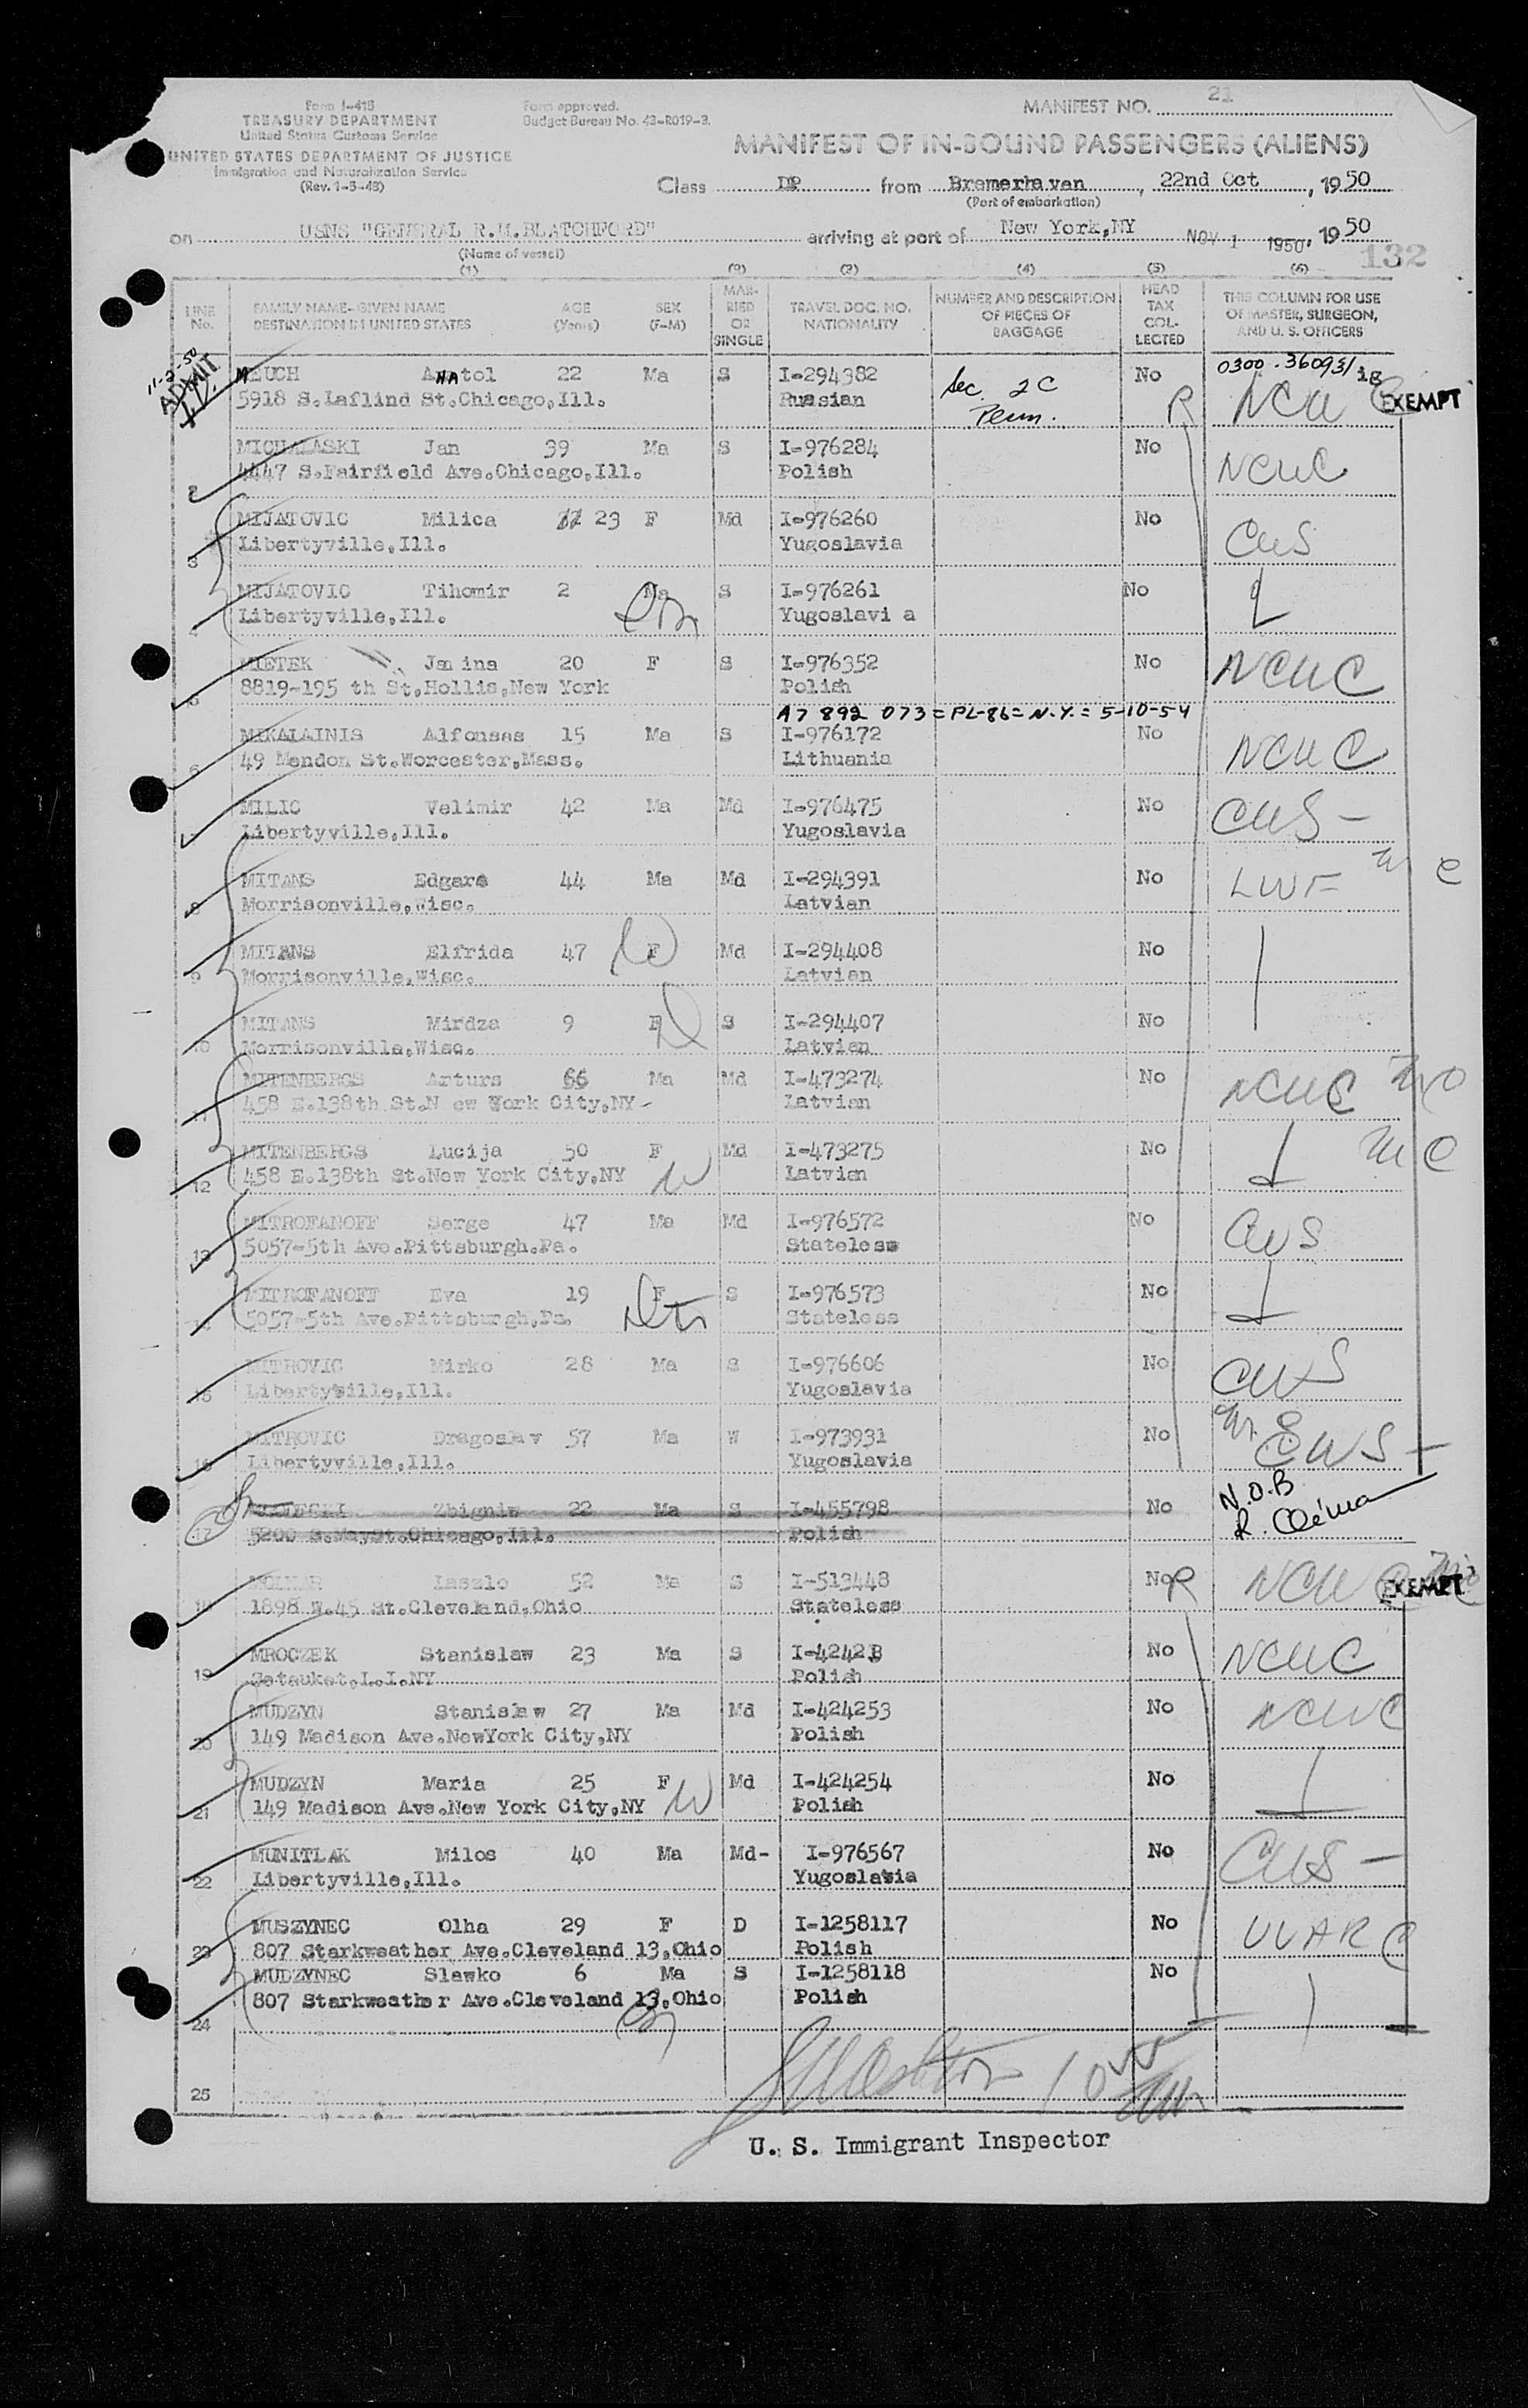 Form I-415
TREASURY DEPARTMENT
United States Customs Service
UNITED STATES DEPARTMENT OF JUSTICE
Immigration and Naturalization Service
(Rev. 1-3-48)
Form approved.
Budget Bureau No. 43-R019-3.
MANIFEST NO. 21
MANIFEST OF IN-BOUND PASSENGERS (ALIENS)
Class DP from Bremerhaven, 22nd Oct, 1950
(Port of embarkation)
on USNS "GENERAL R.M.BLATCHFORD" arriving at port of New York,NY NOV 1 1950, 1950
(Name of vessel)
132
(1) (2) (3) (4) (5) (6)
LINE No. FAMILY NAME-GIVEN NAME DESTINATION IN UNITED STATES AGE (Years) SEX (F-M) MARRIED OR SINGLE TRAVEL DOC. NO. NATIONALITY NUMBER AND DESCRIPTION OF PIECES OF BAGGAGE HEAD TAX COLLECTED THIS COLUMN FOR USE OF MASTER, SURGEON, AND U. S. OFFICERS
11-2-50 ADMIT
0300-360931 ig
EUCH Anatol 22 Ma S I-294382 Sec. 2C No
5918 S.Laflind St.Chicago,Ill. Russian Penn. R NCW EXEMPT
2 MICHALASKI Jan 39 Ma S I-976284 No NCWC
4447 S.Fairfield Ave.Chicago,Ill. Polish
3 MIJATOVIC Milica 23 F Md I-976260 No CWS
Libertyville,Ill. Yugoslavia
4 MIJATOVIC Tihomir 2 Ma S I-976261 No
Libertyville,Ill. Yugoslavi a
5 MIETEK Janina 20 F S I-976352 No NCWC
8819-195 th St.Hollis,New York Polish
A7 892 073=PL-86=N.Y.=5-10-54
6 MIKALAINIS Alfonsas 15 Ma S I-976172 No NCWC
49 Mendon St.Worcester,Mass. Lithuania
MILIC Velimir 42 Ma Md I-976475 No CWS-
Libertyville,Ill. Yugoslavia
8 MITANS Edgars 44 Ma Md I-294391 No LWF
Morrisonville,Wisc. Latvian
9 MITANS Elfrida 47 F Md I-294408 No
Morrisonville,Wisc. Latvian
10 MITANS Mirdza 9 F S I-294407 No
Morrisonville,Wisc. Latvian
11 MITENBERGS Arturs 66 Ma Md I-473274 No NCWC
458 E.138th St.N ew York City,NY- Latvian
12 MITENBERGS Lucija 50 F Md I-473275 No
458 E.138th St.New York City,NY Latvian
13 MITROFANOFF Serge 47 Ma Md I-976572 No CWS
5057-5th Ave.Pittsburgh.Pa. Stateless
14 MITROFANOFF Eva 19 F S I-976573 No
5057-5th Ave.Pittsburgh,Pa. Stateless
15 MITROVIC Mirko 28 Ma S I-976606 No CWS
Libertyville,Ill. Yugoslavia
16 MITROVIC Dragoslav 57 Ma W I-973931 No CWS-
Libertyville,Ill. Yugoslavia
17 Zbigniw 22 Ma S I-455798 No N.O.B
5200 S.MaySt.Chicago,Ill. Polish R.
18 MOLNAR Laszlo 52 Ma S I-513448 No R NCW EXEMPT
1898 W.45 St.Cleveland,Ohio Stateless
19 MROCZEK Stanislaw 23 Ma S No NCWC
Setauket,L.I.NY Polish
20 MUDZYN Stanislaw 27 Ma Md I-424253 No NCWC
149 Madison Ave.NewYork City,NY Polish
21 MUDZYN Maria 25 F Md I-424254 No
149 Madison Ave.New York City,NY Polish
22 MUNITLAK Milos 40 Ma Md- I-976567 No CWS-
Libertyville,Ill. Yugoslavia
23 MUSZYNEC Olha 29 F D I-1258117 No UUARC
807 Starkweather Ave.Cleveland 13,Ohio Polish
24 MUDZYNEC Slawko 6 Ma S I-1258118 No
807 Starkweather Ave.Cleveland 13,Ohio Polish
25
U. S. Immigrant Inspector